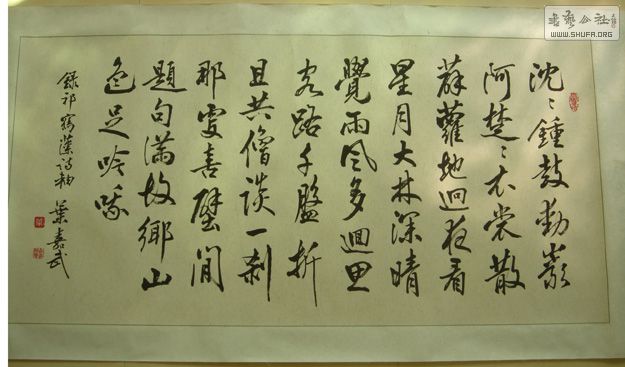 沈〻鍾鼓動巖
阿楚〻衣裳散
薜蘿地迥夜看
星月大林深晴
覺雨風多迴思
客路千盤折
且共僧談一刹
那更喜壁間
題句滿故鄉山
色足吟哦
錄祁寯藻詩軸 葉嘉武
書藝公社
WWW.SHUFA.ORG